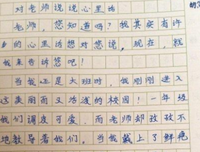 对老师说说心里话
老师，您知道吗？我其实有许
多的心里话想对您说，现在，就
我来告诉您吧！
当我还是大班时，我刚刚进入
这美丽而又活泼的校园！一年级
们调皮可爱，而老师却孜孜不
地教导着我们，当我戴上了鲜艳